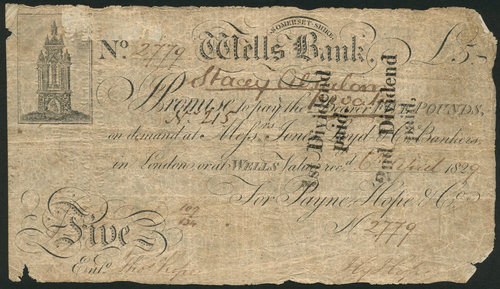 SOMERSET-SHIRE
No. 2779 Wells Bank, £5-
Stacey
Promise to pay the Bearer FIVE POUNDS,
No 215
on demand at Messrs Jones Loyd & Co. Bankers
in London or at WELLS Value recd 1829
For Payne Hope & Co.
No 2779
Five
Entd. Thos Hope
1st Dividend paid
2nd Dividend paid,